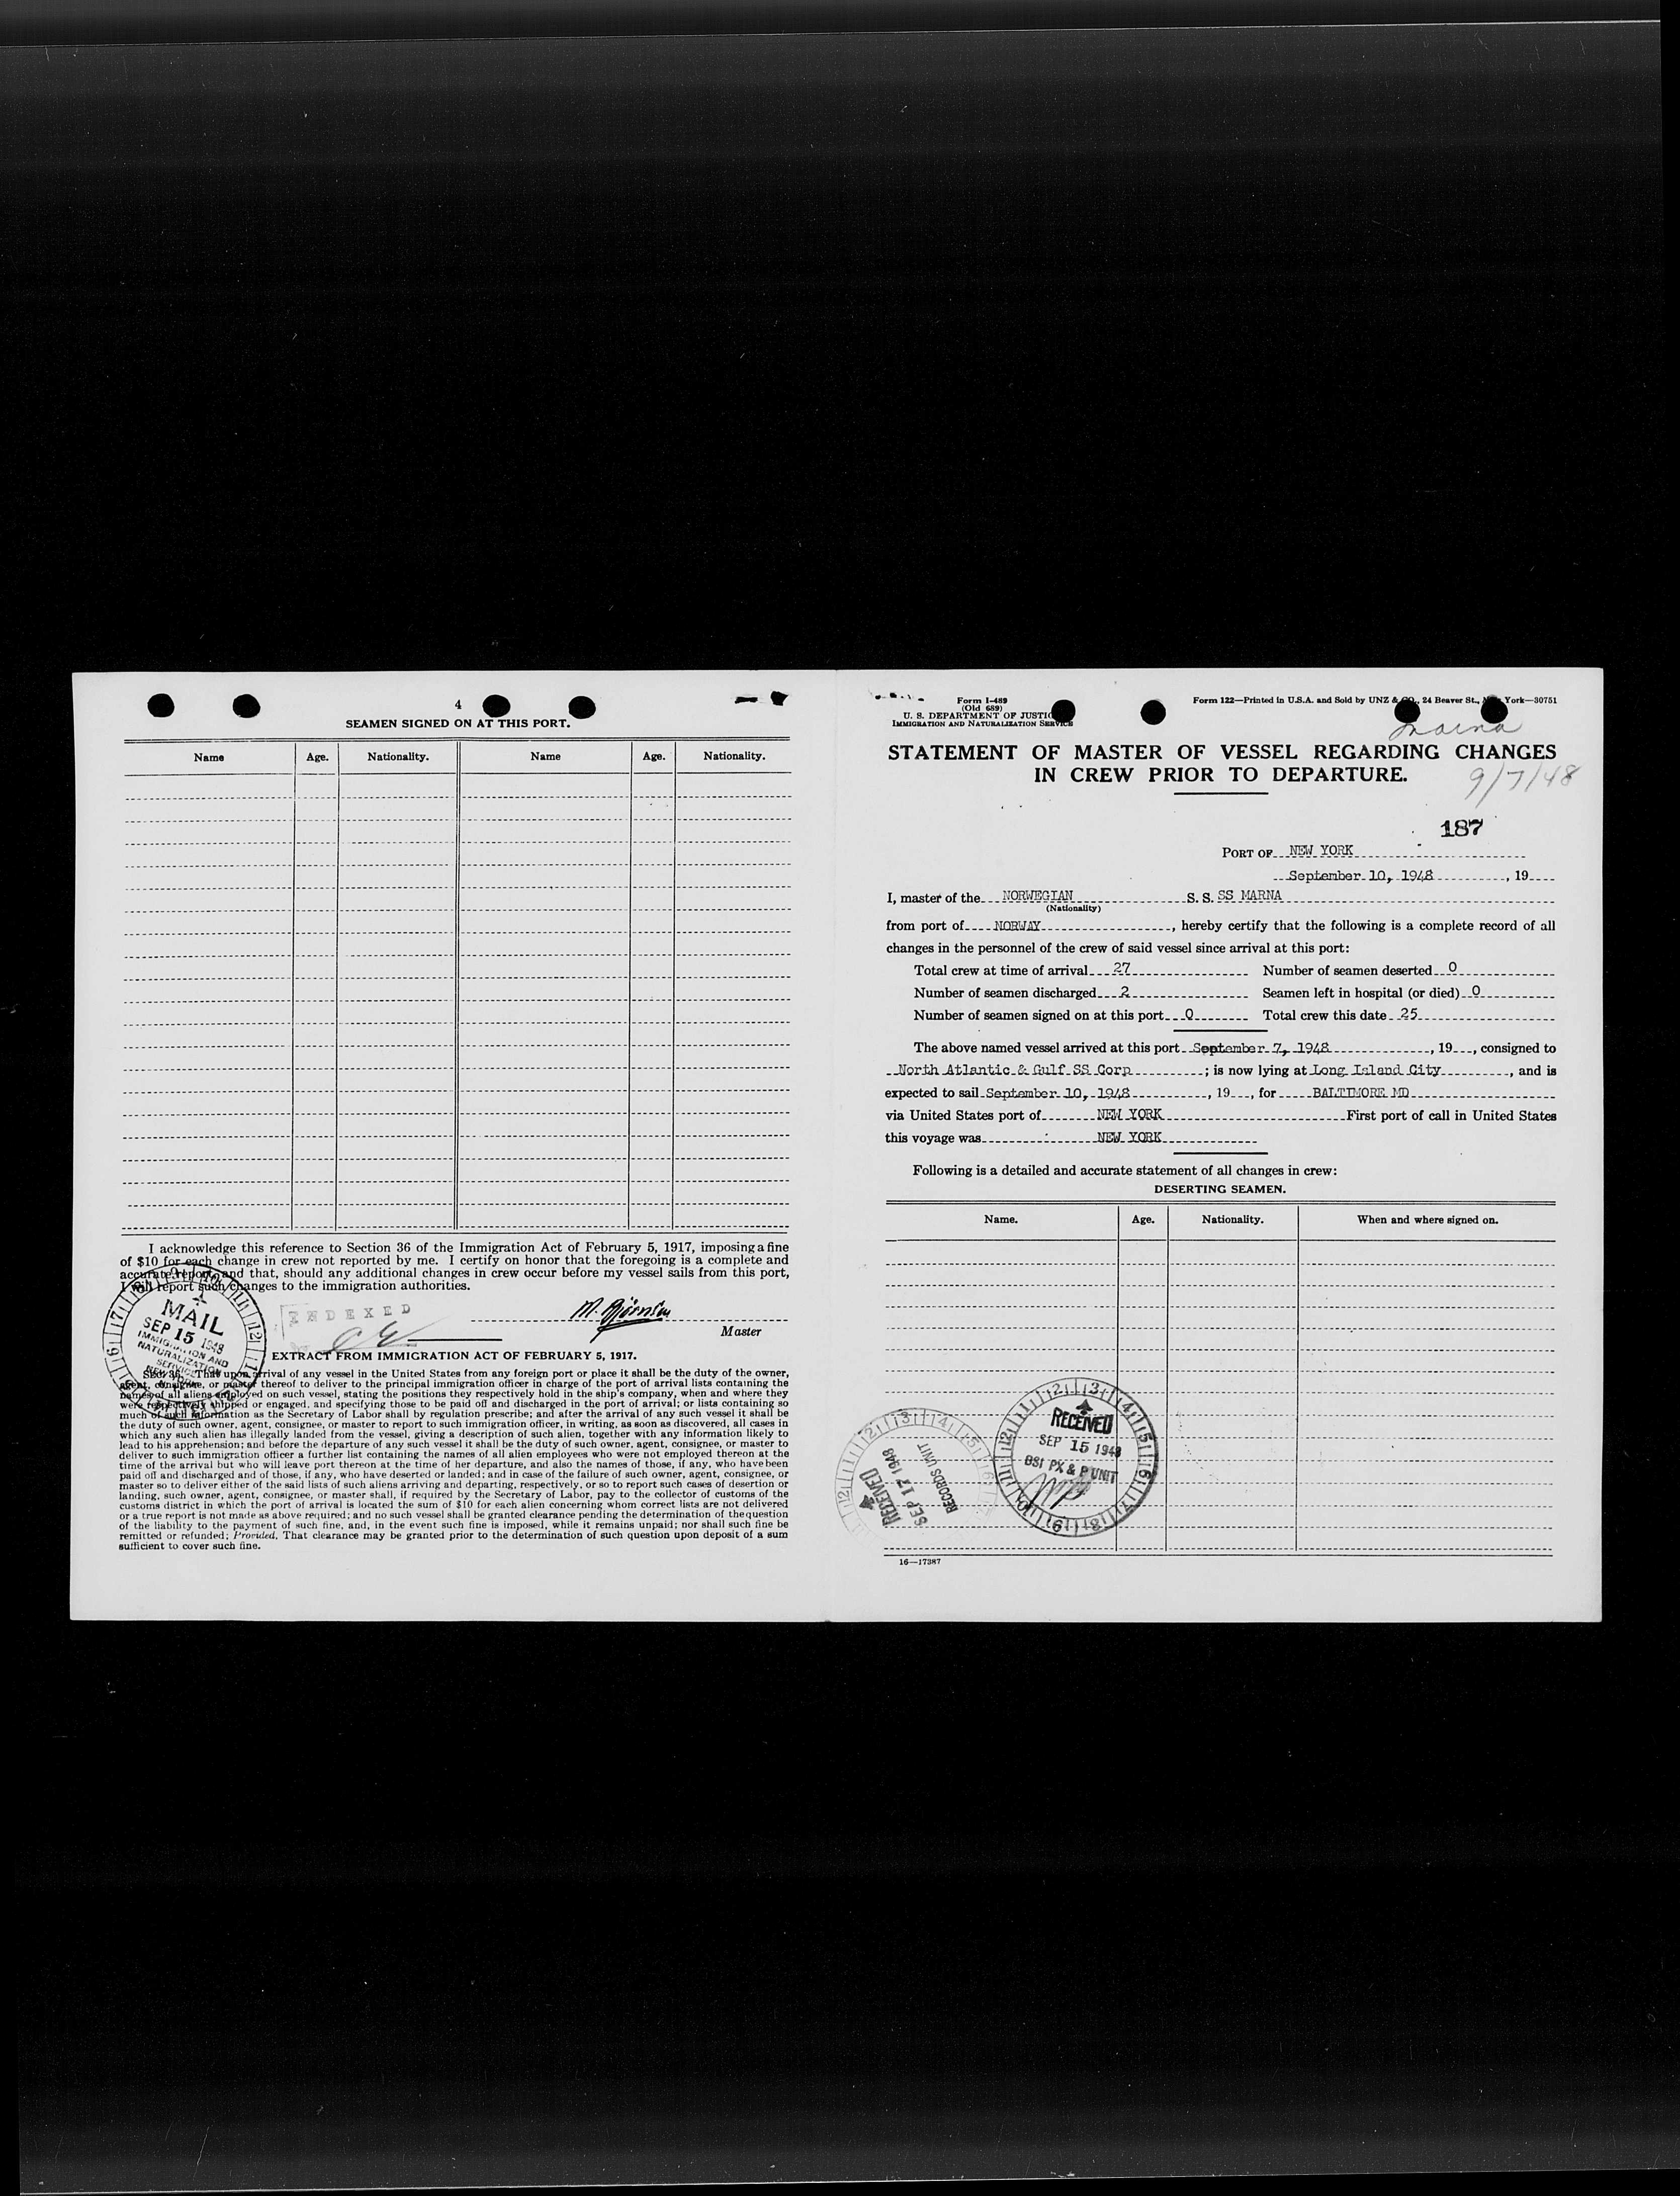 4
SEAMEN SIGNED ON AT THIS PORT.
Name Age. Nationality. Name Age. Nationality.
I acknowledge this reference to Section 36 of the Immigration Act of February 5, 1917, imposing a fine
of $10 for each change in crew not reported by me. I certify on honor that the foregoing is a complete and
accurate report and that, should any additional changes in crew occur before my vessel sails from this port,
I will report such changes to the immigration authorities.
MAIL
SEP 15 1948
IMMIGRATION AND
NATURALIZATION
SERVICE
INDEXED
M. Bjørnsen
Master
EXTRACT FROM IMMIGRATION ACT OF FEBRUARY 5, 1917.
SEC. 36. That upon arrival of any vessel in the United States from any foreign port or place it shall be the duty of the owner,
agent, consignee, or master thereof to deliver to the principal immigration officer in charge of the port of arrival lists containing the
names of all aliens employed on such vessel, stating the positions they respectively hold in the ship's company, when and where they
were respectively shipped or engaged, and specifying those to be paid off and discharged in the port of arrival; or lists containing so
much of such information as the Secretary of Labor shall by regulation prescribe; and after the arrival of any such vessel it shall be
the duty of such owner, agent, consignee, or master to report to such immigration officer, in writing, as soon as discovered, all cases in
which any such alien has illegally landed from the vessel, giving a description of such alien, together with any information likely to
lead to his apprehension; and before the departure of any such vessel it shall be the duty of such owner, agent, consignee, or master to
deliver to such immigration officer a further list containing the names of all alien employees who were not employed thereon at the
time of the arrival but who will leave port thereon at the time of her departure, and also the names of those, if any, who have been
paid off and discharged and of those, if any, who have deserted or landed; and in case of the failure of such owner, agent, consignee, or
master so to deliver either of the said lists of such aliens arriving and departing, respectively, or so to report such cases of desertion or
landing, such owner, agent, consignee, or master shall, if required by the Secretary of Labor, pay to the collector of customs of the
customs district in which the port of arrival is located the sum of $10 for each alien concerning whom correct lists are not delivered
or a true report is not made as above required; and no such vessel shall be granted clearance pending the determination of the question
of the liability to the payment of such fine, and, in the event such fine is imposed, while it remains unpaid; nor shall such fine be
remitted or refunded: Provided, That clearance may be granted prior to the determination of such question upon deposit of a sum
sufficient to cover such fine.
Form I-489
(Old 689)
U. S. DEPARTMENT OF JUSTICE
IMMIGRATION AND NATURALIZATION SERVICE
Form 122—Printed in U.S.A. and Sold by UNZ & CO., 24 Beaver St., New York—30751
Marna
STATEMENT OF MASTER OF VESSEL REGARDING CHANGES
IN CREW PRIOR TO DEPARTURE.
9/7/48
187
PORT OF NEW YORK
September 10, 1948, 19
I, master of the NORWEGIAN S. S. SS MARNA
(Nationality)
from port of NORWAY, hereby certify that the following is a complete record of all
changes in the personnel of the crew of said vessel since arrival at this port:
Total crew at time of arrival 27 Number of seamen deserted 0
Number of seamen discharged 2 Seamen left in hospital (or died) 0
Number of seamen signed on at this port 0 Total crew this date 25
The above named vessel arrived at this port September 7, 1948, 19, consigned to
North Atlantic & Gulf SS Corp; is now lying at Long Island City, and is
expected to sail September 10, 1948, 19, for BALTIMORE MD
via United States port of NEW YORK First port of call in United States
this voyage was NEW YORK
Following is a detailed and accurate statement of all changes in crew:
DESERTING SEAMEN.
Name. Age. Nationality. When and where signed on.
RECEIVED
SEP 17 1948
RECORDS UNIT
RECEIVED
SEP 15 1948
BSI PX & P UNIT
16—17387